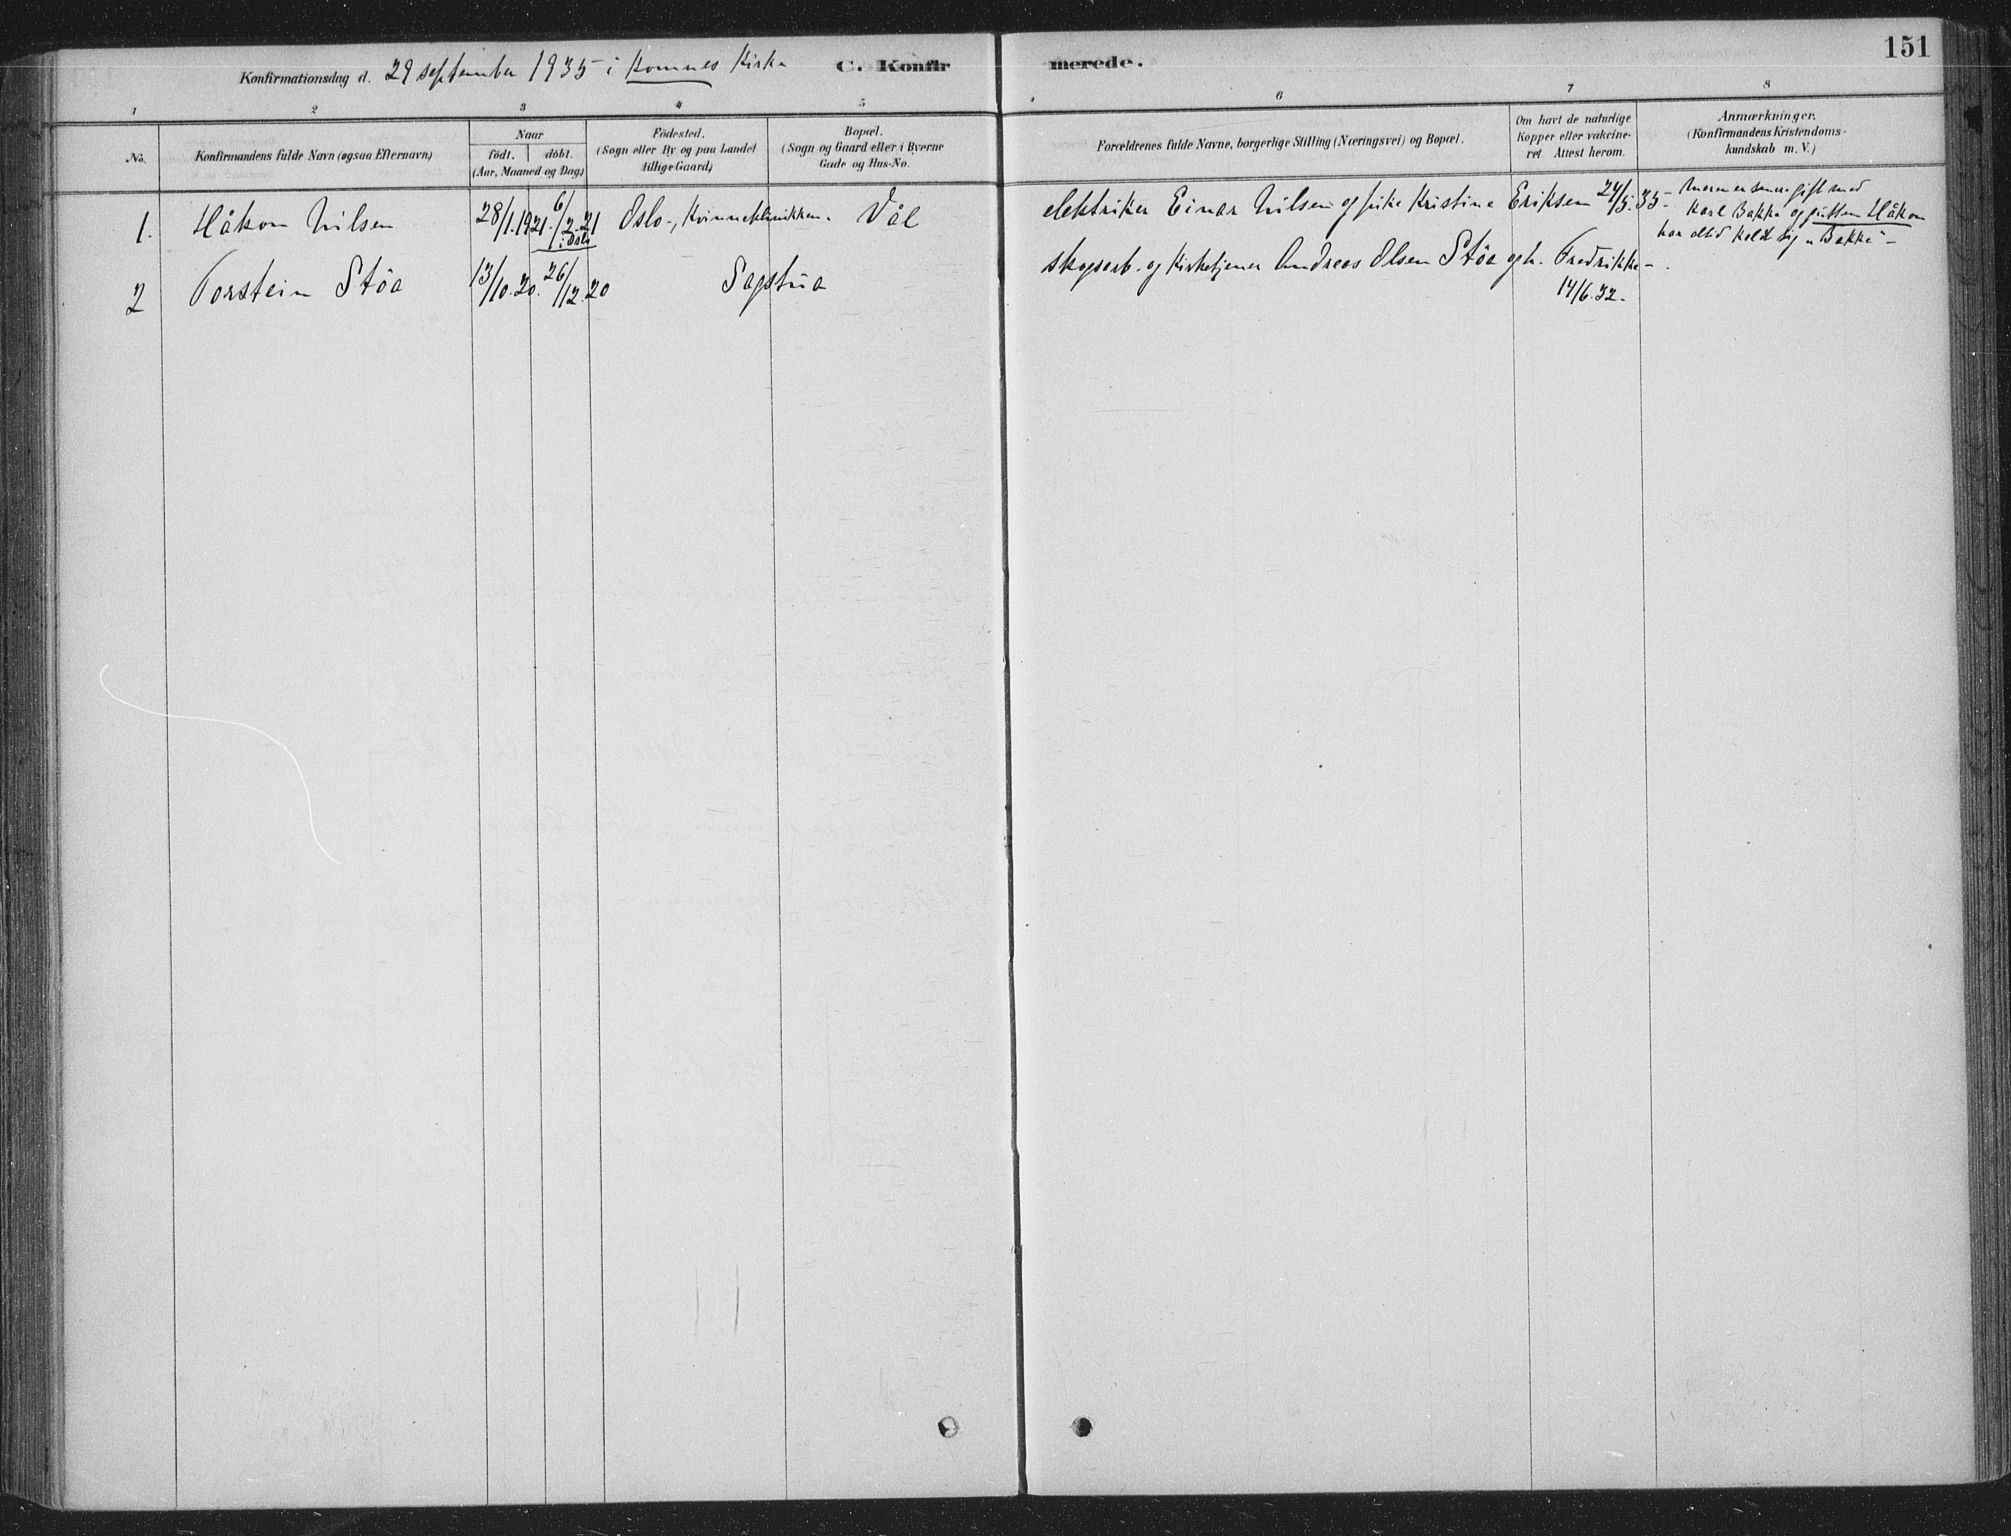 151
Konfirmationsdag d. 29 september 1935 i Komnes Kirke C. Konfir merede.
1 2 3 4 5 6 7 8
No. Konfirmandens fulde Navn (øgsaa Efternavn) Naar født. døbt. (Aar, Maaned og Dag) Fødested. (Sogn eller By og paa Landet tillige Gaard) Bopæl. (Sogn og Gaard eller i Byerne Gade og Hus-No. Forældrenes fulde Navne, borgerlige Stilling (Næringsvei) og Bopæl. Om havt de naturlige Kopper eller vakcineret Attest herom. Anmærkninger. (Konfirmandens Kristendomskundskab m. V.)
1. Håkon Nilsen 28/1.1921. 6/2.21 i Oslo Oslo-, Kvinneklinikken. Vål elektriker Einar Nilsen og pike Kristine Eriksen 24/5.35- moren er senere gift med
Karl Bakke og gutten Håkon
har altid kaldt sig "Bakke"-
2 Torstein Støa 13/10.20. 26/12.20 Sagstua skogsarb. og Kirketjener Andreas Olsen Støa og h. Fredrikke-.
14/6.32-